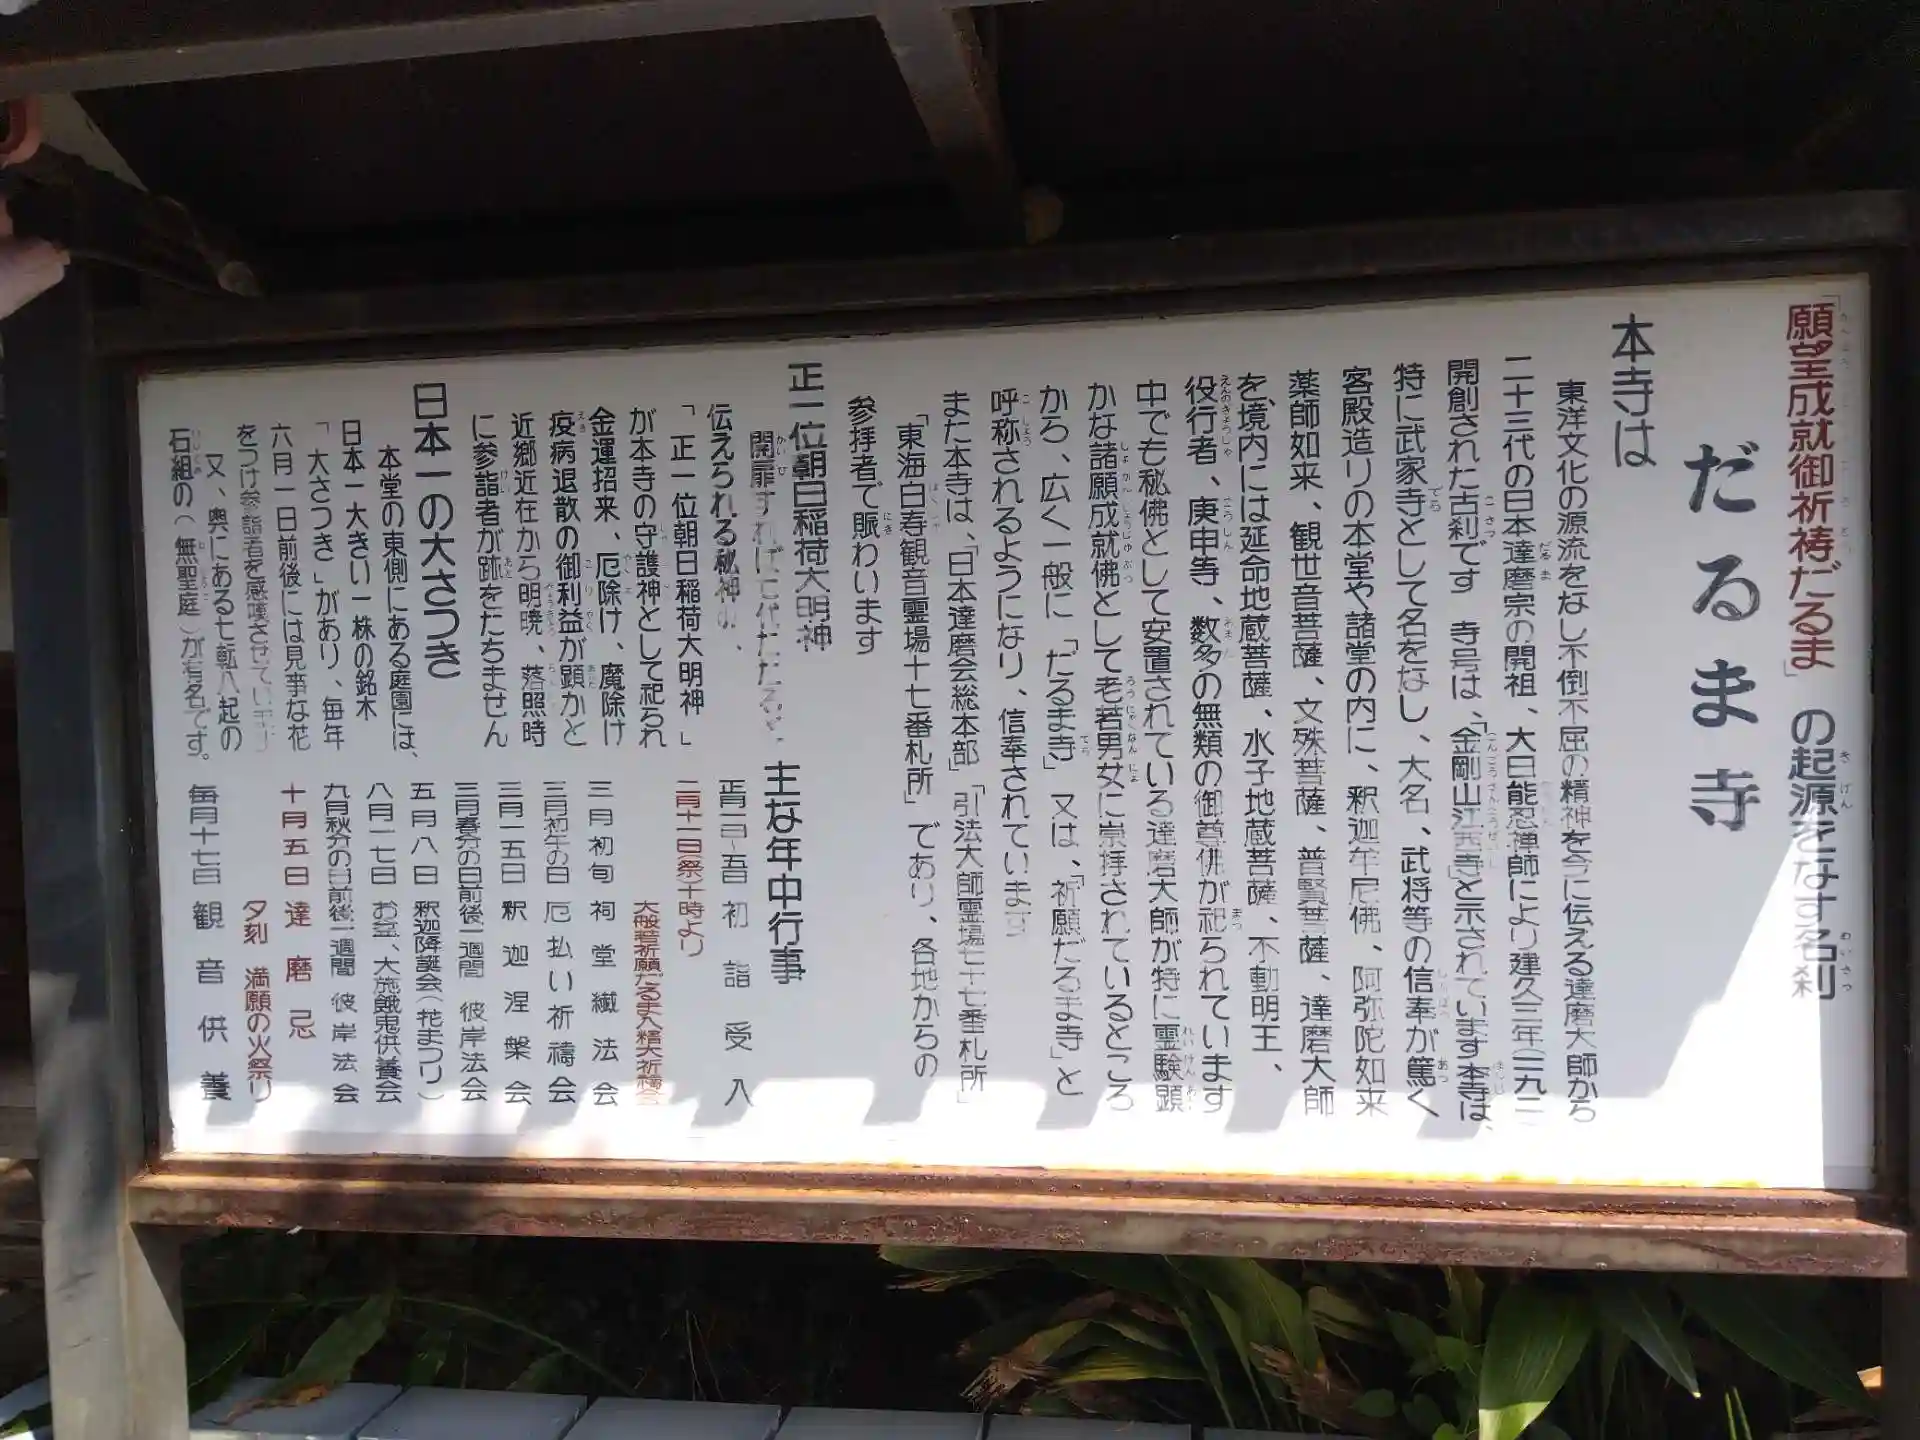 「願望成就御祈祷だるま」の起源をなす名刹
だるま寺
本寺は
東洋文化の源流をなし不倒不屈の精神を今に伝える達磨大師から
二十三代の日本達磨宗の開祖、大日能忍禅師により建久三年(一一九二)
開創された古刹です 寺号は、「金剛山江西寺」と示されています 本寺は、
特に武家寺として名をなし、大名、武将等の信奉が篤く
客殿造りの本堂や諸堂の内に、釈迦牟尼佛、阿弥陀如来
薬師如来、観世音菩薩、文殊菩薩、普賢菩薩、達磨大師
を、境内には延命地蔵菩薩、水子地蔵菩薩、不動明王、
役行者、庚申等、数多の無類の御尊佛が祀られています
中でも秘佛として安置されている達磨大師が特に霊験顕
かな諸願成就佛として老若男女に崇拝されているところ
から、広く一般に「だるま寺」又は、「祈願だるま寺」と
呼称されるようになり、信奉されています
また本寺は、「日本達磨会総本部」「引法大師霊場七十七番札所」
「東海白寿観音霊場十七番札所」であり、各地からの
参拝者で賑わいます
正一位朝日稲荷大明神
開扉すれば七代たたるぞ、
伝えられる秘神の、
「正一位朝日稲荷大明神」
が本寺の守護神として祀られ
金運招来、厄除け、魔除け
疫病退散の御利益が顕かと
近郷近在から明暁、落照時
に参詣者が跡をたちません
日本一の大さつき
本堂の東側にある庭園には、
日本一大きい一株の銘木
「大さつき」があり、毎年
六月一日前後には見事な花
をつけ参詣者を感嘆させています
又、奥にある七転八起の
石組の(無聖庭)が有名です。
主な年中行事
正月一日~五日 初詣受入
二月十一日(祭)十時より
大般若祈願だるま入精大祈禱会
三月初旬 祠堂繊法会
三月初午の日 厄払い祈禱会
三月一五日 釈迦涅槃会
三月春分の日前後一週間 彼岸法会
五月八日 釈迦降誕会(花まつり)
八月一七日 お盆、大施餓鬼供養会
九月秋分の日前後一週間 彼岸法会
十月五日 達磨忌
夕刻 満願の火祭り
毎月十七日 観音供養